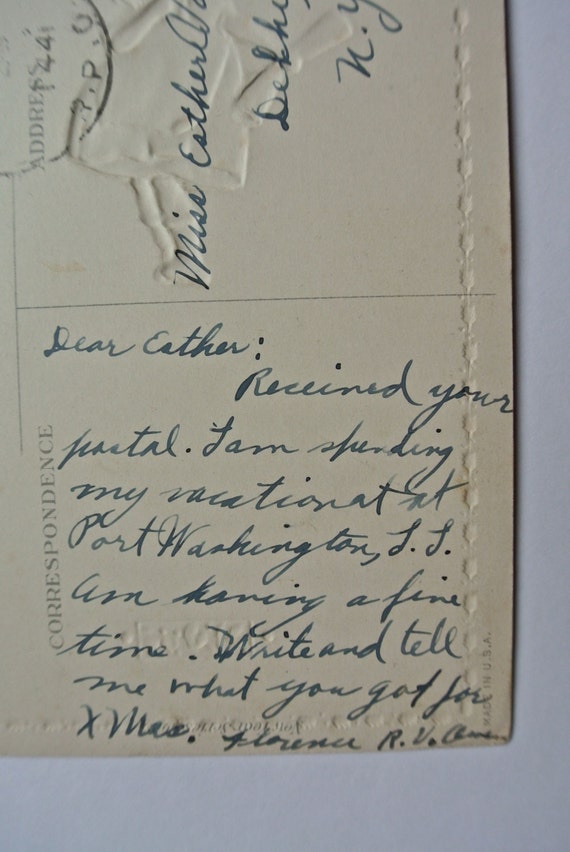 ADDRESS
Miss Esther
N.Y
CORRESPONDENCE
Dear Esther:
Received your
postal. I am spending
my vacation at at
Port Washington, L.I.
Am having a fine
time. Write and tell
me what you got for
XMas. Florence R. V.
MADE IN U.S.A.